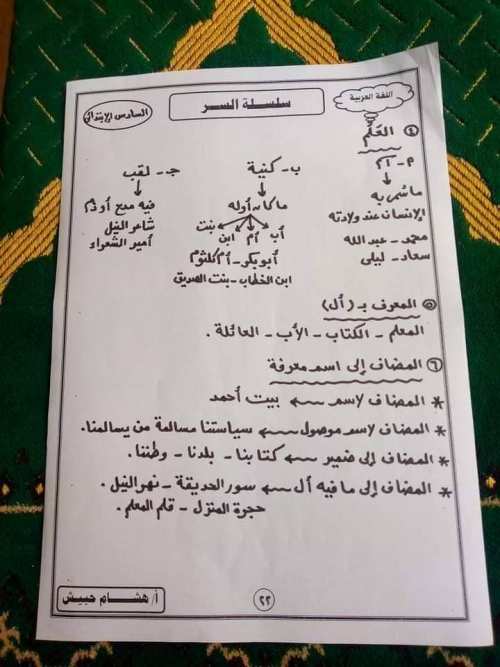 اللغة العربية
سلسلة السر
السادس الابتدائي
٤ العَلَم
أ - اسم ب - كنية جـ - لقب
ما سُمى به ما كان أوله فيه مدح أو ذم
الإنسان عند ولادته أب أم ابن بنت شاعر النيل
محمد - عبد الله أبو بكر - أم كلثوم أمير الشعراء
سعاد - ليلى ابن الخطاب - بنت الصديق
٥ المعرف بـ (أل)
المعلم - الكتاب - الأب - العائلة .
٦ المضاف إلى اسم معرفة
* المضاف لاسم ← بيت أحمد
* المضاف لاسم موصول ← سياستنا مسالمة من يسالمنا.
* المضاف إلى ضمير ← كتابنا - بلدنا - وطننا.
* المضاف إلى ما فيه أل ← سور الحديقة - نهر النيل .
حجرة المنزل - قلم المعلم .
أ/ هشام حبيش
٢٢